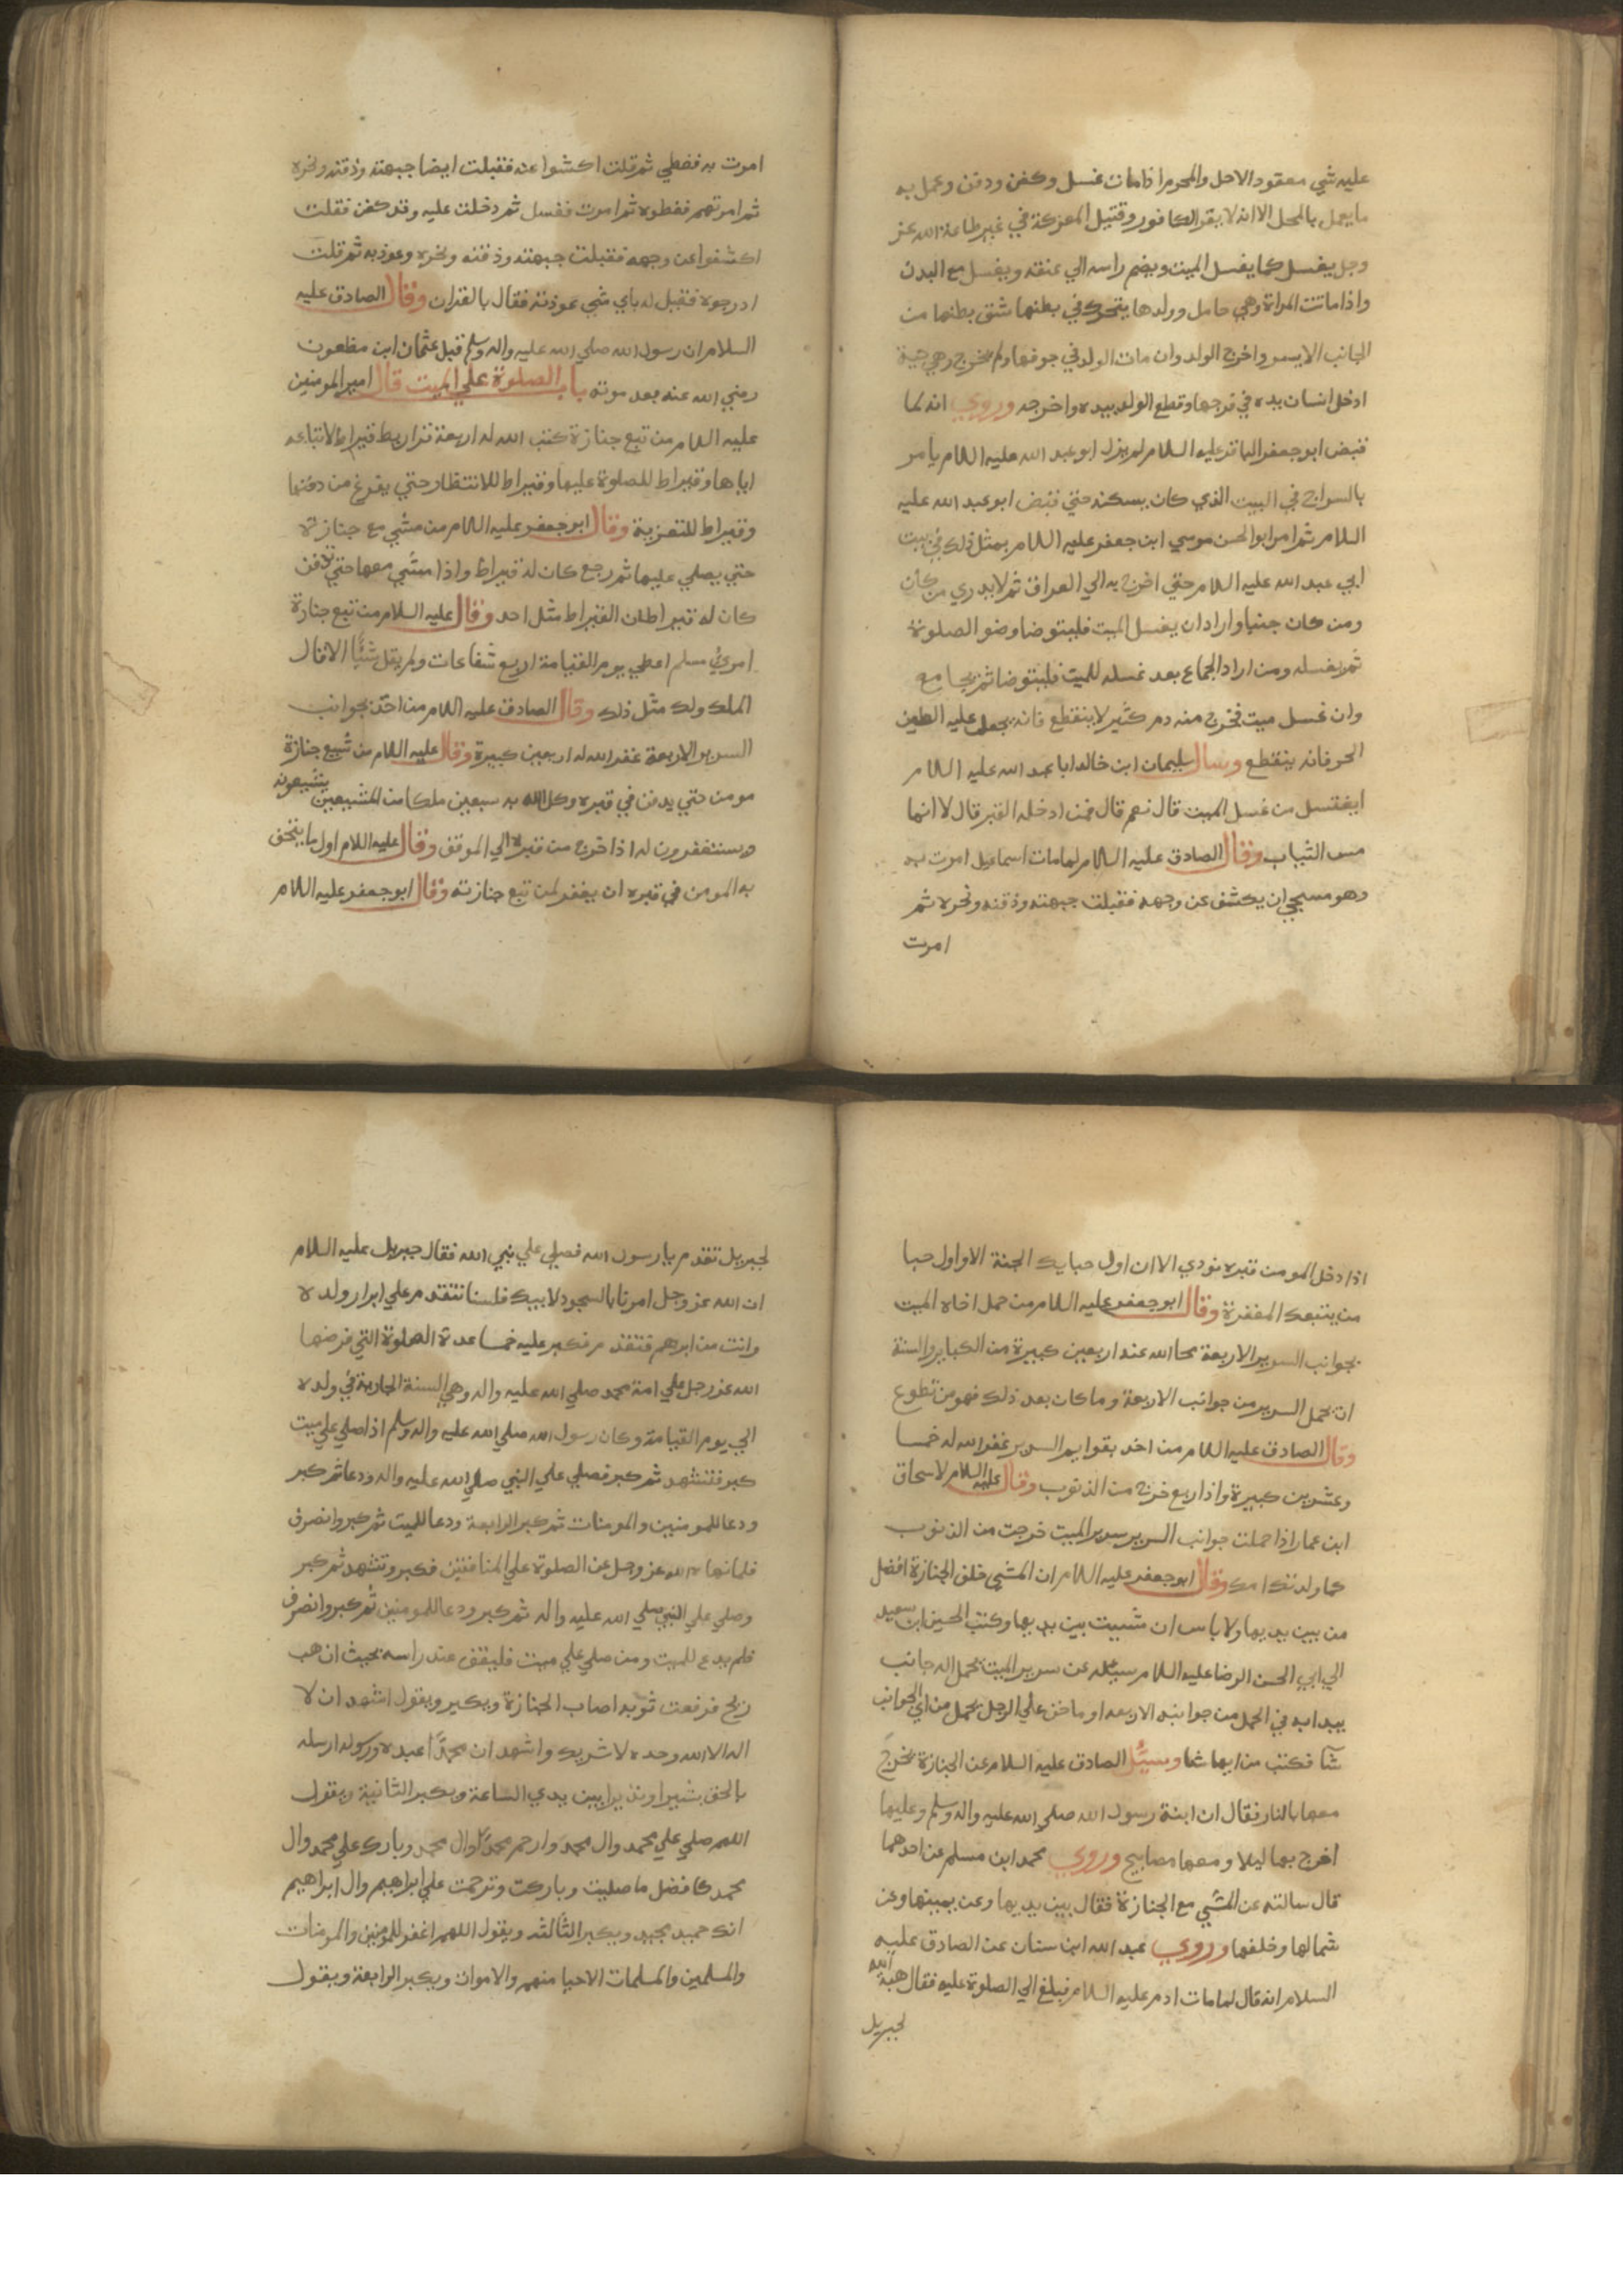 عليه شي معقود الاحل والمحرم اذا مات غسل وكفن ودفن وعمل به
ما يعمل بالمحل الا انه لا يقر الكافور وقتيل المعركة في غير طاعة الله عز
وجل يغسل كما يغسل الميت ويضم راسه الي عنقه ويغسل مع البدن
واذا ماتت المراة وهي حامل وولدها يتحرك في بطنها شق بطنها من
الجانب الايسر واخرج الولد وان مات الولد في جوفها ولم يخرج وهي حية
ادخل انسان يده في فرجها وقطع الولد بيده واخرجه وروي انه لما
قبض ابو جعفر الباقر عليه السلام لم يزل ابو عبد الله عليه اللام يامر
بالسراج في البيت الذي كان يسكنه حتي قبض ابو عبد الله عليه
السلام ثم امر ابو الحسن موسي ابن جعفر عليه اللام بمثل ذلك في بيت
ابي عبد الله عليه اللام حتي اخرج به الي العراق ثم لا يدري من كان
ومن كان جنبا واراد ان يغسل الميت فليتوضا وضو الصلوة
ثم يغسله ومن اراد الجماع بعد غسله للميت فليتوضا ثم يجامع
وان غسل ميت فخرج منه دم كثير لا ينقطع فانه يجعل عليه الطين
الحر فانه ينقطع وسال سليمان ابن خالد ابا عبد الله عليه اللام
ايغتسل من غسل الميت قال نعم قال فمن ادخله القبر قال لا انما
مس الثياب وقال الصادق عليه اللام لما مات اسماعيل امرت به
وهو مسجي ان يكشف عن وجهه فقبلت جبهته وذقنه ونحره ثم
امرت
امرت به فغطي ثم قلت اكشوا عنه فقبلت ايضا جبهته وذقنه ونحره
ثم امرتهم فغطوه ثم امرت فغسل ثم دخلت عليه وقد كفن فقلت
اكشفوا عن وجهه فقبلت جبهته وذقنه ونحره وعوذبه ثم قلت
ادرجوه فقيل له باي شي عوذته فقال بالقران وقال الصادق عليه
السلام ان رسول الله صلي الله عليه واله وسلم قبل عثمان ابن مظعون
رضي الله عنه بعد موته باب الصلوة علي الميت قال امير المومنين
عليه اللام من تبع جنازة كتب الله له اربعة قراريط قيراط لاتباعه
اياها وقيراط للصلوة عليها وقيراط للانتظار حتي يفرغ من دفنها
وقيراط للتعزية وقال ابو جعفر عليه اللام من مشي مع جنازة
حتي يصلي عليها ثم رجع كان له قيراط واذا مشي معها حتي تدفن
كان له قيراطان القيراط مثل احد وقال عليه السلام من تبع جنازة
امري مسلم اعطي يوم القيامة اربع شفاعات ولم يقل شيًا الا قال
الملك ولك مثل ذلك وقال الصادق عليه اللام من اخذ بجوانب
السرير الاربعة غفر الله له اربعين كبيرة وقال عليه اللام من شيع جنازة
مومن حتي يدفن في قبره وكل الله به سبعين ملكا من المشيعين يشيعونه
ويستغفرون له اذا خرج من قبره الي الموقف وقال عليه اللام اول ما يتحف
به المومن في قبره ان يغفر لمن تبع جنازته وقال ابو جعفر عليه اللام
اذا دخل المومن قبره نودي الا ان اول حبايك الجنة الا واول حبا
من يتبعك المغفرة وقال ابو جعفر عليه اللام من حمل اخاه الميت
بجوانب السرير الاربعة محا الله عنه اربعين كبيرة من الكباير والسنة
ان يحمل السرير من جوانب الاربعة وما كان بعد ذلك فهو من تطوع
وقال الصادق عليه اللام من اخذ بقوايم السرير غفر الله له خمسا
وعشرين كبيرة واذا ربع خرج من الذنوب وقال عليه اللام لاسحاق
ابن عمار اذا حملت جوانب السرير سرير الميت خرجت من الذنوب
كما ولدتك امك وقال ابو جعفر عليه اللام ان المشي خلف الجنازة افضل
من بين يديها ولا باس ان مشيت بين يديها وكتب الحسين ابن سعيد
الي ابي الحسن الرضا عليه اللام سيله عن سرير الميت يحمل اله جانب
يبدا به في الحمل من جوانبه الاربعه او ما خف علي الرجل يحمل من اي الجوانب
شا فكتب من ايها شا وسيُل الصادق عليه السلام عن الجنازة تخرج
معها بالنار فقال ان ابنة رسول الله صلي الله عليه واله وسلم وعليها
اخرج بها ليلا ومعها مصابيح وروي محمد ابن مسلم عن احدهما
قال سالته عن المشي مع الجنازة فقال بين يديها وعن يمينها وعن
شمالها وخلفها وروي عبد الله ابن سنان عن الصادق عليه
السلام انه قال لما مات ادم عليه اللام فبلغ الي الصلوة عليه فقال هبة الله
لجبريل
لجبريل تقدم يا رسول الله فصلي علي نبي الله فقال جبريل عليه السلام
ان الله عز وجل امرنا بالسجود لابيك فلسنا نتقدم علي ابرار ولده
وانت من ابرهم فتقدم فكبر عليه خمسا عدة الصلوة التي فرضها
الله عز وجل علي امة محمد صلي الله عليه واله وهي السنة الجارية في ولده
الي يوم القيامة وكان رسول الله صلي الله عليه واله وسلم اذا صلي علي ميت
كبر فتشهد ثم كبر فصلي علي النبي صلي الله عليه واله ودعا ثم كبر
ودعا للمومنين والمومنات ثم كبر الرابعة ودعا للميت ثم كبر وانصرف
فلما نهاه الله عز وجل عن الصلوة علي المنافقين فكبر وتشهد ثم كبر
وصلي علي النبي صلي الله عليه واله ثم كبر ودعا للمومنين ثم كبر وانصرف
فلم يدع للميت ومن صلي علي ميت فليقف عند راسه بحيث ان هب
ريح فرفعت ثوبه اصاب الجنازة ويكبر ويقول اشهد ان لا
اله الا الله وحده لا شريك واشهد ان محمدًا عبده ورسوله ارسله
بالحق بشيرا ونذيرا بين يدي الساعة ويكبر الثانية ويقول
اللهم صلي علي محمد وال محمد وارحم محمدًا وال محمد وبارك علي محمد وال
محمد كافضل ما صليت وباركت وترحمت علي ابراهيم وال ابراهيم
انك حميد مجيد ويكبر الثالثه ويقول اللهم اغفر للمومنين والمومنات
والمسلمين والمسلمات الاحيا منهم والاموات ويكبر الرابعة ويقول